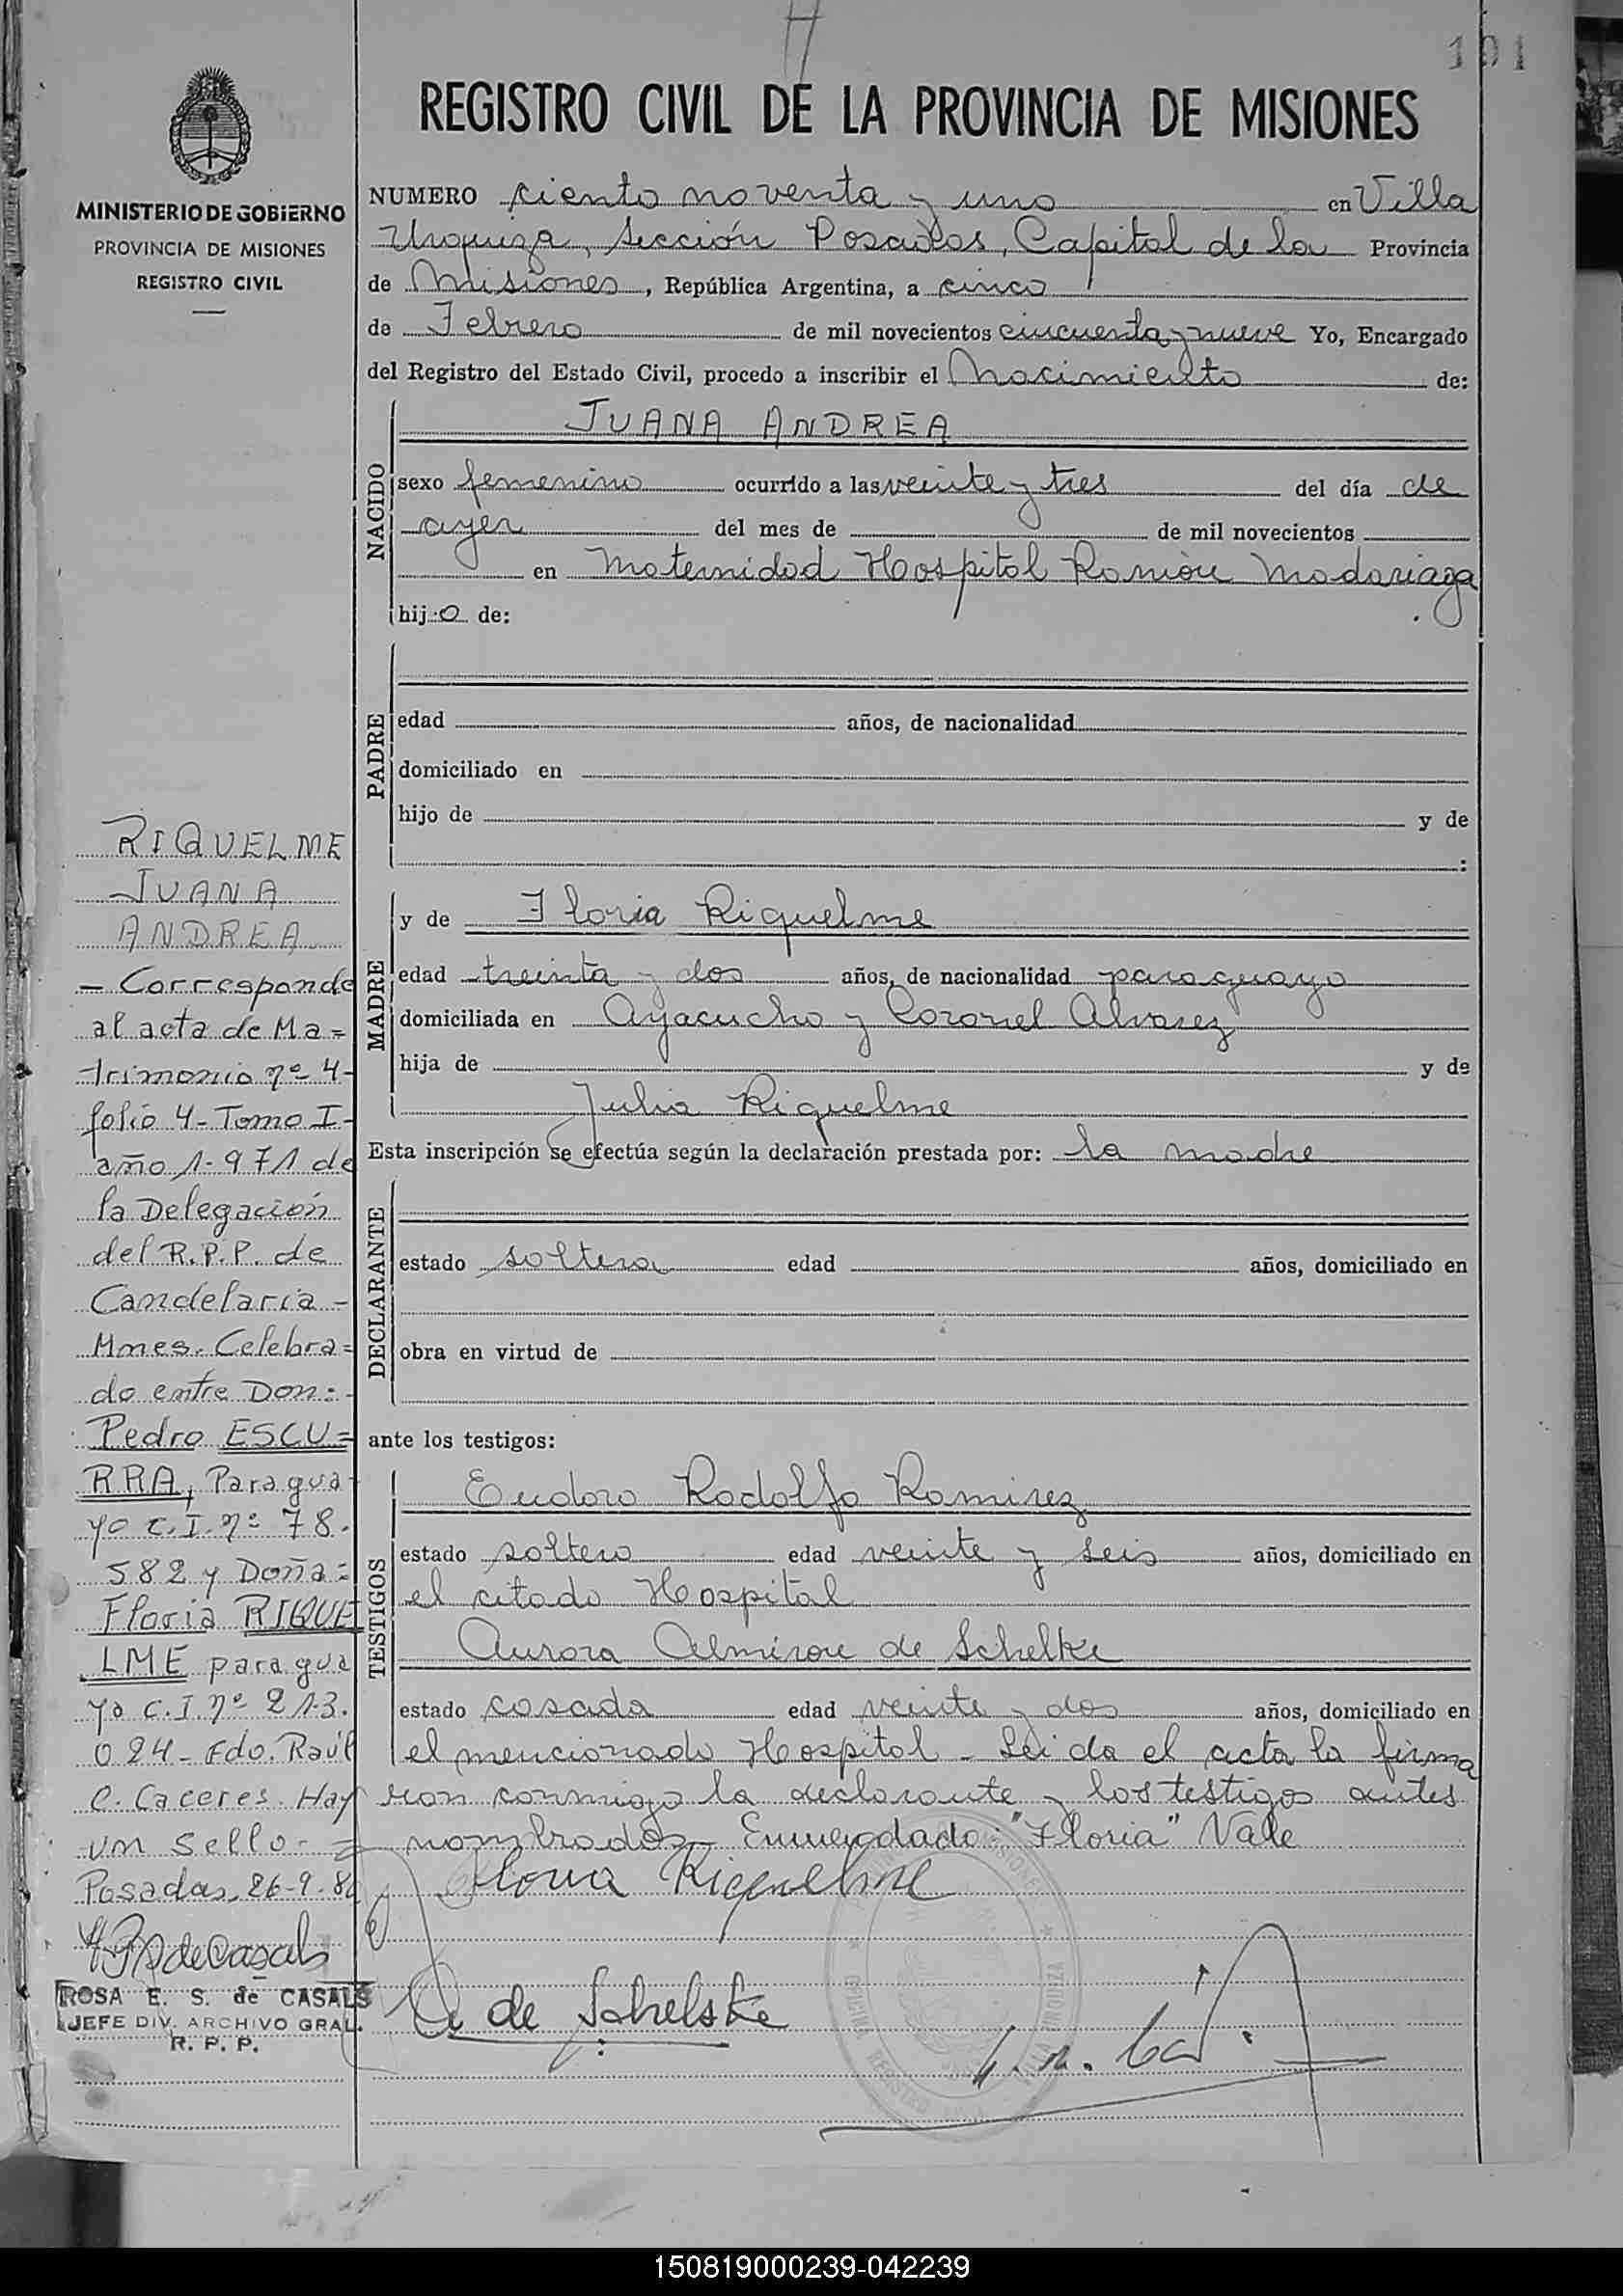 101
REGISTRO CIVIL DE LA PROVINCIA DE MISIONES
MINISTERIO DE GOBIERNO
PROVINCIA DE MISIONES
REGISTRO CIVIL
NUMERO ciento noventa y uno en Villa
Urquiza, Sección Posadas, Capital de la Provincia
de Misiones, República Argentina, a cinco
de Febrero de mil novecientos cincuenta y nueve Yo, Encargado
del Registro del Estado Civil, procedo a inscribir el Nacimiento de:
NACIDO
JUANA ANDREA
sexo femenino ocurrido a las veinte y tres del día de
ayer del mes de de mil novecientos
en Maternidad Hospital Ramón Madariaga
hij o de:
PADRE
edad años, de nacionalidad
domiciliado en
hijo de y de
:
MADRE
y de Floria Riquelme
edad treinta y dos años, de nacionalidad paraguaya
domiciliada en Ayacucho y Coronel Alvarez
hija de y de
Julia Riquelme
Esta inscripción se efectúa según la declaración prestada por: la madre
DECLARANTE
estado soltera edad años, domiciliado en
obra en virtud de
ante los testigos:
TESTIGOS
Eudoro Rodolfo Ramirez
estado soltero edad veinte y seis años, domiciliado en
el citado Hospital
Aurora Almirou de Schelke
estado casada edad veinte y dos años, domiciliado en
el mencionado Hospital - Leida el acta la firma
ron conmigo la declarante y los testigos antes
nombrados - Enmendado: "Floria" Vale
Floria Riquelme
A de Schelske
RIQUELME
JUANA
ANDREA
- Corresponde
al acta de Ma=
trimonio nº 4-
folio 4- Tomo I-
año 1.971 de
la Delegación
del R.P.P. de
Candelaria -
Mnes. Celebra=
do entre Don:-
Pedro ESCU=
RRA, Paragua
yo C.I. nº 78.
582 y Doña=
Floria RIQUE
LME paragua
ya C.I. nº 213.
024- Fdo. Raúl
C. Caceres. Hay
un sello -
Posadas, 26-9-8
ROSA E. S. de CASALS
JEFE DIV. ARCHIVO GRAL.
R. P. P.
150819000239-042239